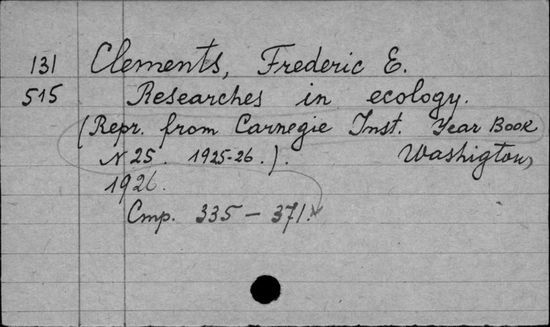 131 Clements, Frederic E.
515 Researches in ecology.
(Repr. from Carnegie Inst. Year Book
N 25. 1925-26.). Washigton,
1926.
Стр. 335 – 371.